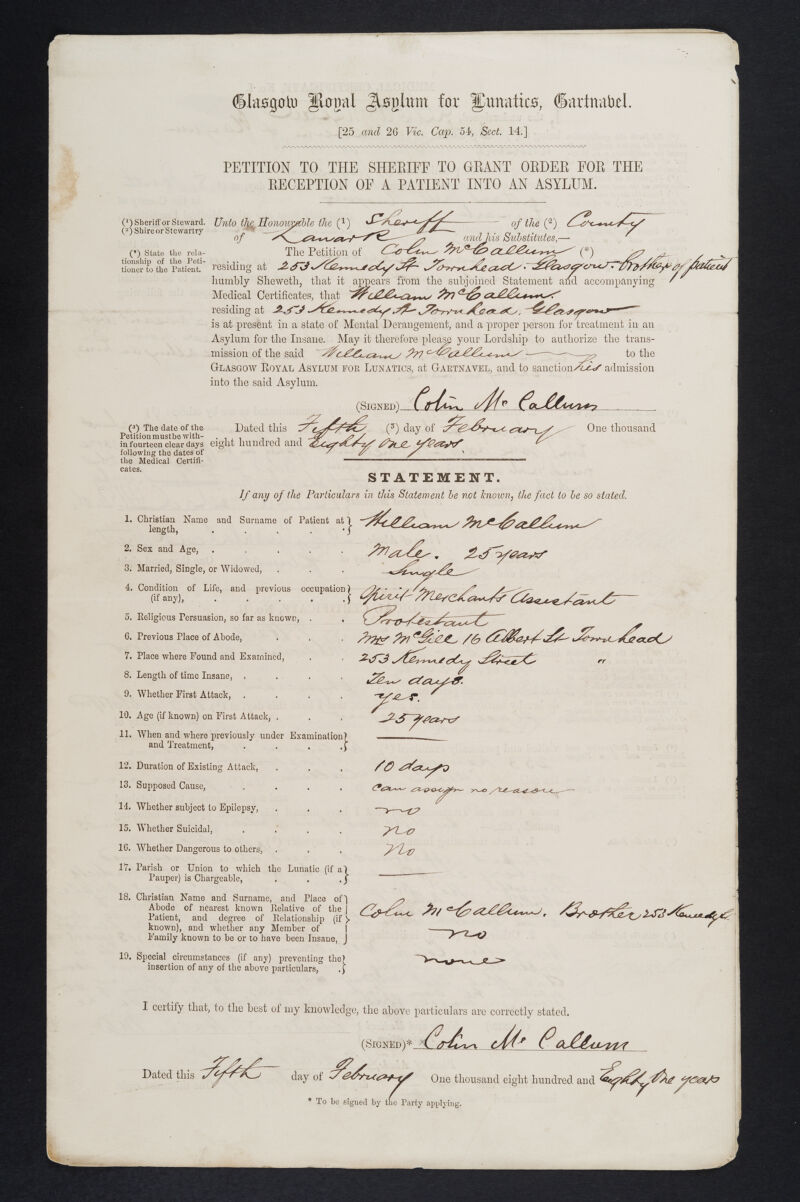 Glasgow Royal Asylum for Lunatics, Gartnabel.
[25 and 26 Vic. Cap. 54, Sect. 14.]
PETITION TO THE SHERIFF TO GRANT ORDER FOR THE
RECEPTION OF A PATIENT INTO AN ASYLUM.
(¹) Sheriff or Steward.
(²) Shire or Stewartry
Unto the Honourable the (¹) Sheriff of the (²) County
of Lanark and his Substitutes,—
(*) State the rela-
tionship of the Peti-
tioner to the Patient.
The Petition of Colin McCallum (*)
residing at 253 Kennedy St Townhead. Glasgow. Brother of patient
humbly Sheweth, that it appears from the subjoined Statement and accompanying
Medical Certificates, that William McCallum.
residing at 253 Kennedy St Townhead. Glasgow
is at present in a state of Mental Derangement, and a proper person for treatment in an
Asylum for the Insane. May it therefore please your Lordship to authorize the trans-
mission of the said William McCallum to the
GLASGOW ROYAL ASYLUM FOR LUNATICS, at GARTNAVEL, and to sanction his admission
into the said Asylum.
(SIGNED) Colin Mc Callum
(³) The date of the
Petition must be with-
in fourteen clear days
following the dates of
the Medical Certifi-
cates.
Dated this Fifth (³) day of February One thousand
eight hundred and Eighty One years.
STATEMENT.
If any of the Particulars in this Statement be not known, the fact to be so stated.
1. Christian Name and Surname of Patient at
length, William McCallum
2. Sex and Age, Male. 25 years
3. Married, Single, or Widowed, Single
4. Condition of Life, and previous occupation
(if any), Spirit Merchants Assistant
5. Religious Persuasion, so far as known, Protestant
6. Previous Place of Abode, Mrs McGill 16 Albert St Townhead
7. Place where Found and Examined, 253 Kennedy Street "
8. Length of time Insane, Ten days.
9. Whether First Attack, yes.
10. Age (if known) on First Attack, 25 years
11. When and where previously under Examination
and Treatment, —
12. Duration of Existing Attack, 10 days
13. Supposed Cause, can assign no reason
14. Whether subject to Epilepsy, no
15. Whether Suicidal, no
16. Whether Dangerous to others, No
17. Parish or Union to which the Lunatic (if a
Pauper) is Chargeable, —
18. Christian Name and Surname, and Place of
Abode of nearest known Relative of the
Patient, and degree of Relationship (if
known), and whether any Member of
Family known to be or to have been Insane,
Colin McCallum. Brother 253 Kennedy St.
no
19. Special circumstances (if any) preventing the
insertion of any of the above particulars, none
I certify that, to the best of my knowledge, the above particulars are correctly stated.
(SIGNED)* Colin Mc Callum
Dated this Fifth day of February One thousand eight hundred and Eighty One years
* To be signed by the Party applying.